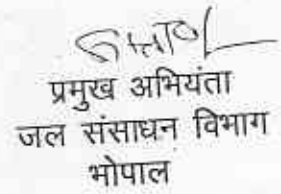 प्रमुख अभियंता
जल संसाधन विभाग
भोपाल